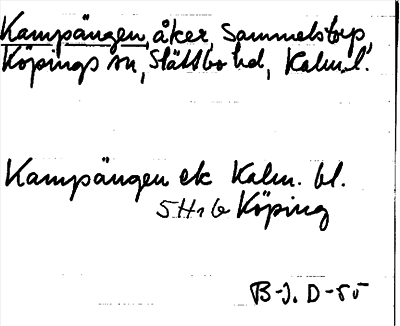 Kampängen, åker, Sammelstorp,
Köpings sn, Slättbo hd, Kalm. l.
Kampängen ek Kalm. bl.
5H1b Köping
B-J. D-55